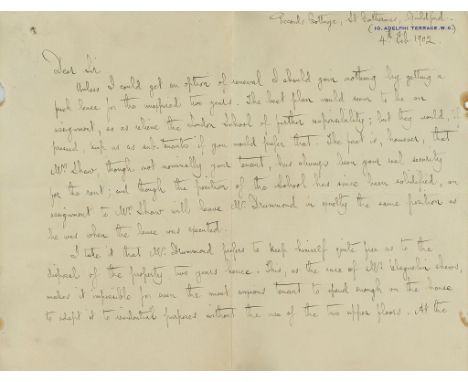 Piccards Cottage, St Catherines, Guildford.
(10, ADELPHI TERRACE. W.C.)
4th Feb. 1902.
Dear Sir
Unless I could get an option of renewal I should gain nothing by getting a
fresh lease for the unexpired two years. The best plan would seem to be an
assignment, so as relieve the London School of further responsibility; but they would, I
presume, keep us as sub-tenants if you would prefer that. The fact is, however, that
Mrs Shaw, though not nominally your tenant, has always been your real security
for the rent; and though the position of the School has since been solidified, an
assignment to Mrs Shaw will leave Mr Drummond in exactly the same position as
he was when the lease was executed.
I take it that Mr Drummond prefers to keep himself quite free as to the
disposal of the property two years hence. This, as the case of Mr shews,
makes it impossible for even the most anxious tenant to spend enough on the house
to adapt it to residential purposes without the use of the two upper floors. At the